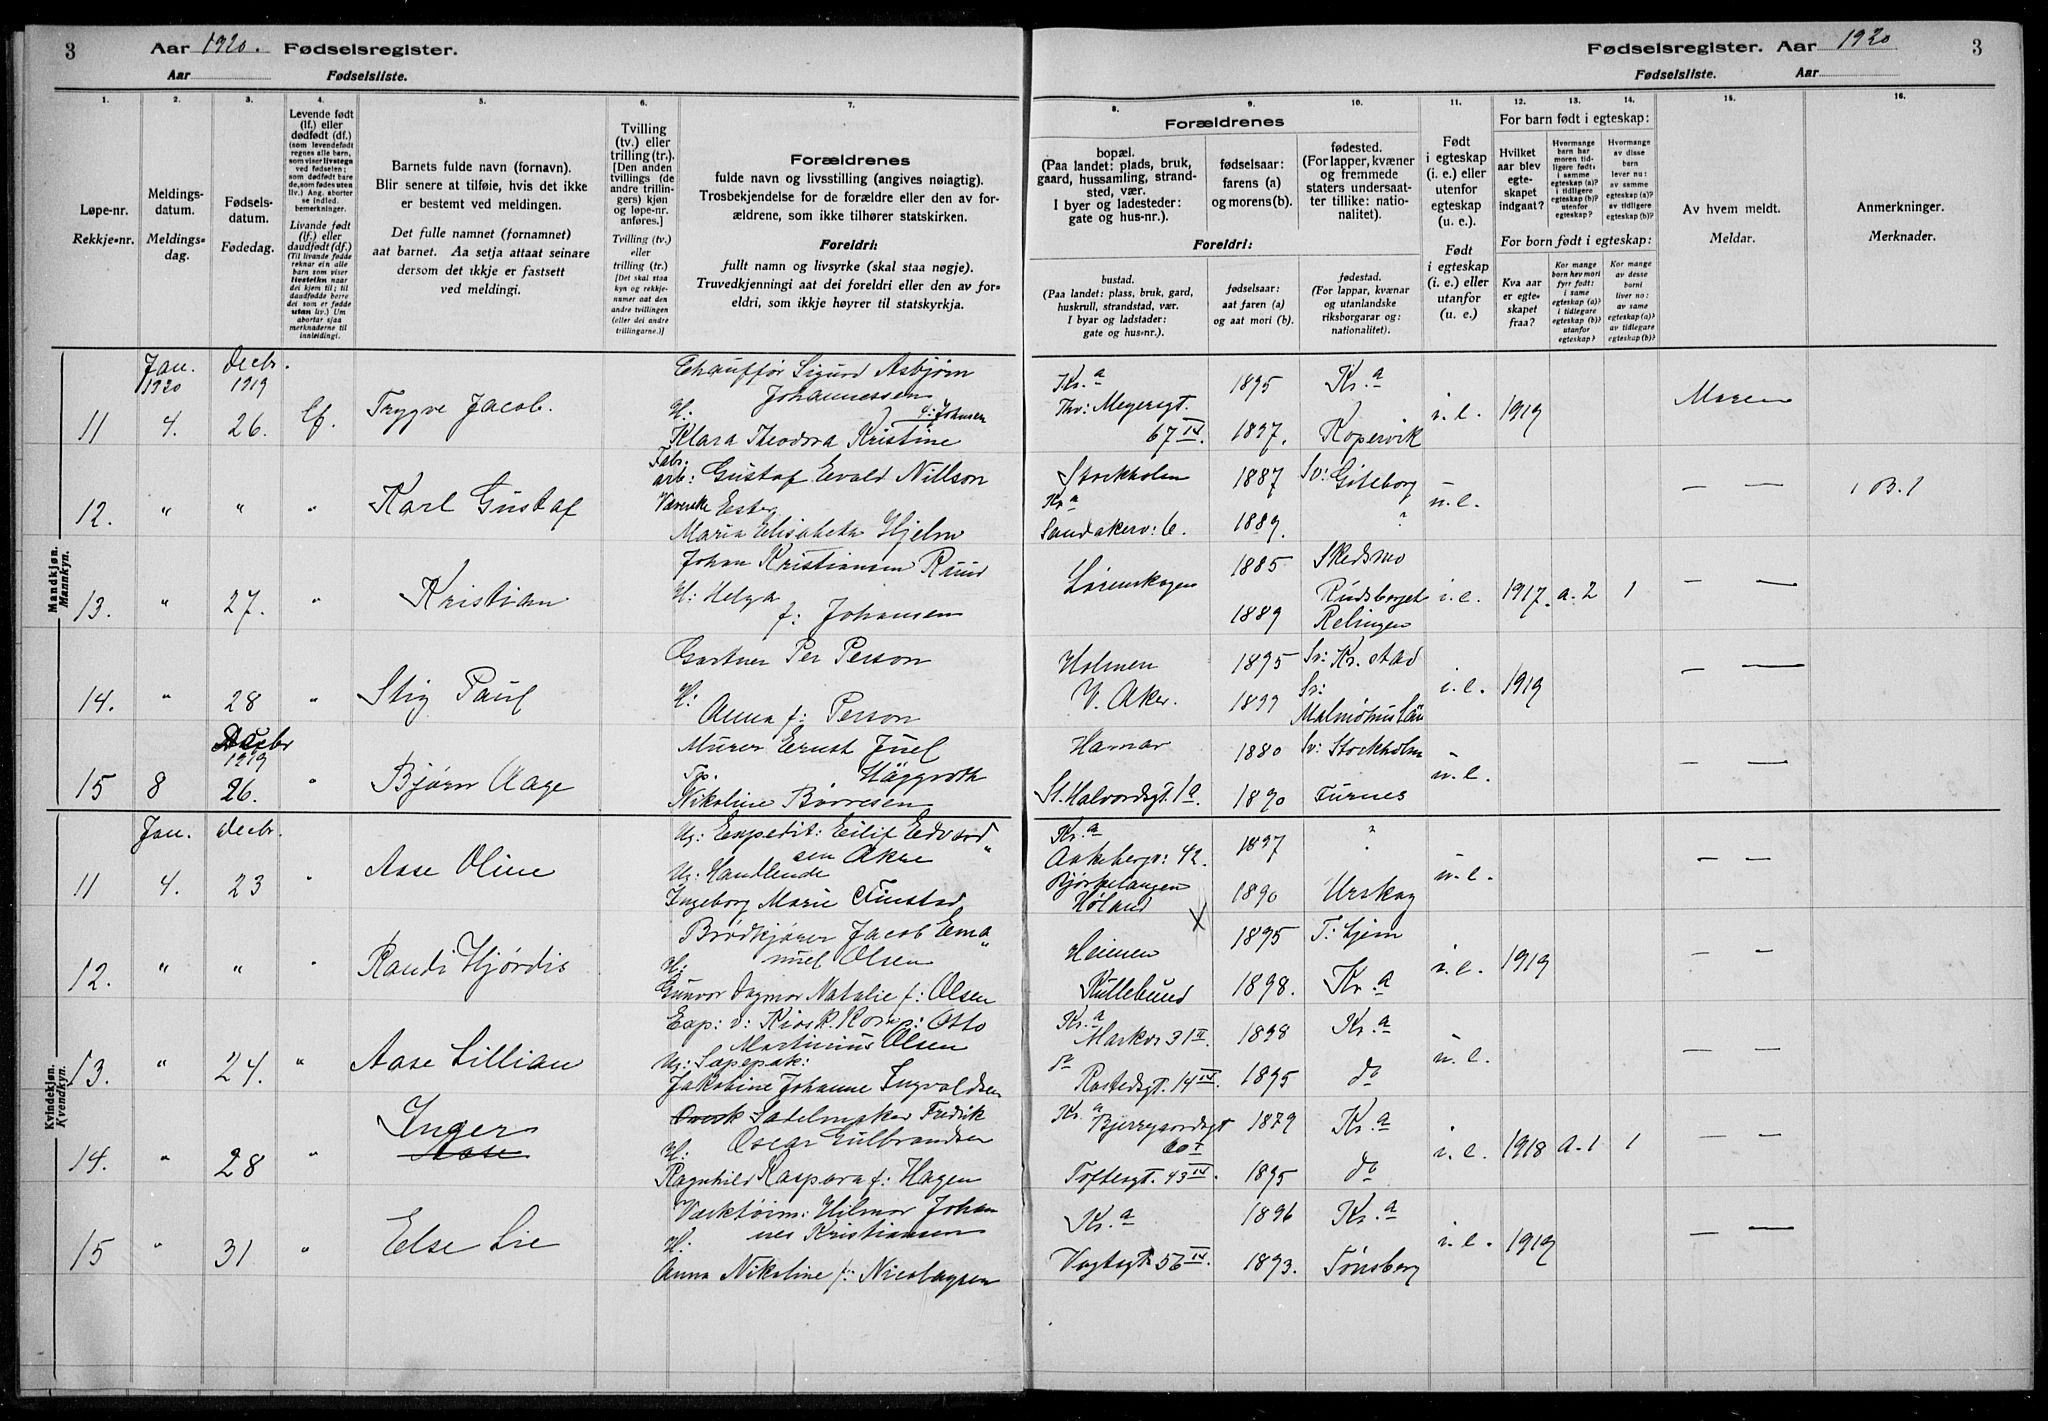 3 Aar 1920. Fødselsregister.
Aar Fødselsliste.
Fødselsregister. Aar 1920 3
Fødselsliste. Aar
1.
Løpe-nr.
Rekkje-nr.
2.
Meldings-
datum.
Meldings-
dag.
3.
Fødsels-
datum.
Fødedag.
4.
Levende født
(lf.) eller
dødfødt (df.)
(som levendefødt
regnes alle barn,
som viser livstegn
ved fødselen;
som dødfødt bare
de, som fødes uten
liv.) Ang. aborter
se indled.
bemerkninger.
Livande født
(lf.) eller
daudfødt (df.)
(Til livande fødde
reknar ein alle
barn som viser
livsteikn naar
dei kjem til; til
daudfødde berre
dei som er fødde
utan liv.) Um
abortar sjaa
merknaderne til
innleiding!
5.
Barnets fulde navn (fornavn).
Blir senere at tilføie, hvis det ikke
er bestemt ved meldingen.
Det fulle namnet (fornamnet)
aat barnet. Aa setja attaat seinare
dersom det ikkje er fastsett
ved meldingi.
6.
Tvilling
(tv.) eller
trilling (tr.).
[Den anden
tvillings (de
andre trillin-
gers) kjøn
og løpe-nr.
anføres.]
Tvilling (tv.)
eller
trilling (tr.)
[Det skal staa
kyn og rekkje-
numer aat den
andre tvillingen
(eller dei andre
trillingarne.)]
7.
Forældrenes
fulde navn og livsstilling (angives nøiagtig).
Trosbekjendelse for de forældre eller den av for-
ældrene, som ikke tilhører statskirken.
Foreldri:
fullt namn og livsyrke (skal staa nøgje).
Truvedkjenningi aat dei foreldri eller den av for-
eldri, som ikkje høyrer til statskyrkja.
Forældrenes
8.
bopæl.
(Paa landet: plads, bruk,
gaard, hussamling, strand-
sted, vær.
I byer og ladesteder:
gate og hus-nr.).
9.
fødselsaar:
farens (a)
og morens (b).
10.
fødested.
(For lapper, kvæner
og fremmede
staters undersaat-
ter tillike: natio-
nalitet).
Foreldri:
bustad.
(Paa landet: plass, bruk, gard,
huskrull, strandstad, vær.
I byar og ladstader:
gate og hus-nr.).
fødselsaar:
aat faren (a)
og aat mori (b).
fødestad.
(For lappar, kvænar
og utanlandske
riksborgarar og:
nationalitet).
11.
Født
i egteskap
(i. e.) eller
utenfor
egteskap
(u. e.).
Født
i egteskap
(i. e.) eller
utanfor
(u. e.)
12. 13. 14.
For barn født i egteskap:
Hvilket
aar blev
egte-
skapet
indgaat?
Hvormange
barn har
moren tid-
ligere født:
i samme
egteskap (a)?
i tidligere
egteskap (b)?
utenfor
egteskap?
Hvormange
av disse
barn
lever nu:
av samme
egteskap (a)?
av tidligere
egteskap (b)?
For born født i egteskap:
Kva aar
er egte-
skapet
fraa?
Kor mange
born hev mori
fyrr født:
i same
egteskap (a)?
i tidlegare
egteskap (b)?
utanfor
egteskap?
Kor mange
av desse
borni
liver no:
av same
egteskap (a)?
av tidlegare
egteskap (b)?
15.
Av hvem meldt.
Meldar.
16.
Anmerkninger.
Merknader.
Mandkjøn.
Mannkyn.
Jan. 1920 Decbr. 1919
11 4. 26. lf. Trygve Jacob.
Chauffør Sigurd Asbjørn
Johannessen
H: f: Johnsen
Klara Theodora Kristine
Kr.a 1895 Kr.a
Th: Meyersgt. 67 IV. 1897. Kopervik i. e. 1919 Moren
12. " " " Karl Gustaf
Fabr. arb: Gustaf Evald Nillson
Ester
Maria Elisabeth Hjelm
Stockholm 1887 Sv: Göteborg
Kr.a
Sandakerv: 6. 1889. ? u. e. — —
13. " 27. " Kristian
Johan Kristiansen Ruud
H: Helga
f: Johansen
Lørenskogen 1885 Skedsmo
1889 Rudsberget
Relingen i. e. 1917. a. 2 1 — —
14. " 28 " Stig Paul
Gartner Per Person
H:
Anna f: Person
Holmen 1895 Sv: Kr. stad
V. Aker. 1899 Sv:
Malmöhus Län i. e. 1919 — —
Decbr 1919
15 8 26. " Bjørn Aage
Murer Ernst Juel
Häggroth
Tp.
Nikoline Børresen
Hamar 1880 Sv: Stockholm
St. Halvordsgt. 1a. 1890 Furnes u. e. — —
Kvindekjøn.
Kvendkyn.
Jan. Decbr.
11 4. 23 " Aase Oline
Ug: Expedit: Eilif Edvard„
sen Akre
Ug: Handlende
Ingeborg Marie Finstad
Kr.a
Aakebergv: 42. 1897 ?
Bjørkelangen
Høland X 1890 Urskog u. e. — —
12. " " " Randi Hjørdis
Brødkjører Jacob Ema„
nuel Olsen
H:
Gunvor Dagmar Natalie f: Olsen
Heimen 1895 T: hjem
Kullebund 1898. Kr.a i. e. 1919 — —
13. " 24. " Aase Lillian
Exp: v: Kiosk. Komp: Otto
Martinius Olsen
Ug: Sæpepak:
Jakobine Johanne Ingvaldsen
Kr.a
Markv: 31 II. 1898 Kr.a
do
Rostedsgt. 14 IV. 1895 do u. e. — —
14. " 28 " Inger
Aase
Sadelmaker Fredrik
Oscar Gulbrandsen
H:
Ragnhild Kaspara f: Hagen
Kr.a Bjerregaardsgt 1879 Kr.a
60 I
Toftesgt. 43 IV. 1895 do i. e. 1918 a. 1 1
15 " 31 " Else Lie
Værktøim: Hilmar Johan
nes Kristiansen
H:
Anna Nikoline f: Nicolaysen
Kr.a 1896 Kr.a
Vogtsgt 56 IV. 1893. Tønsberg i. e. 1919 — —